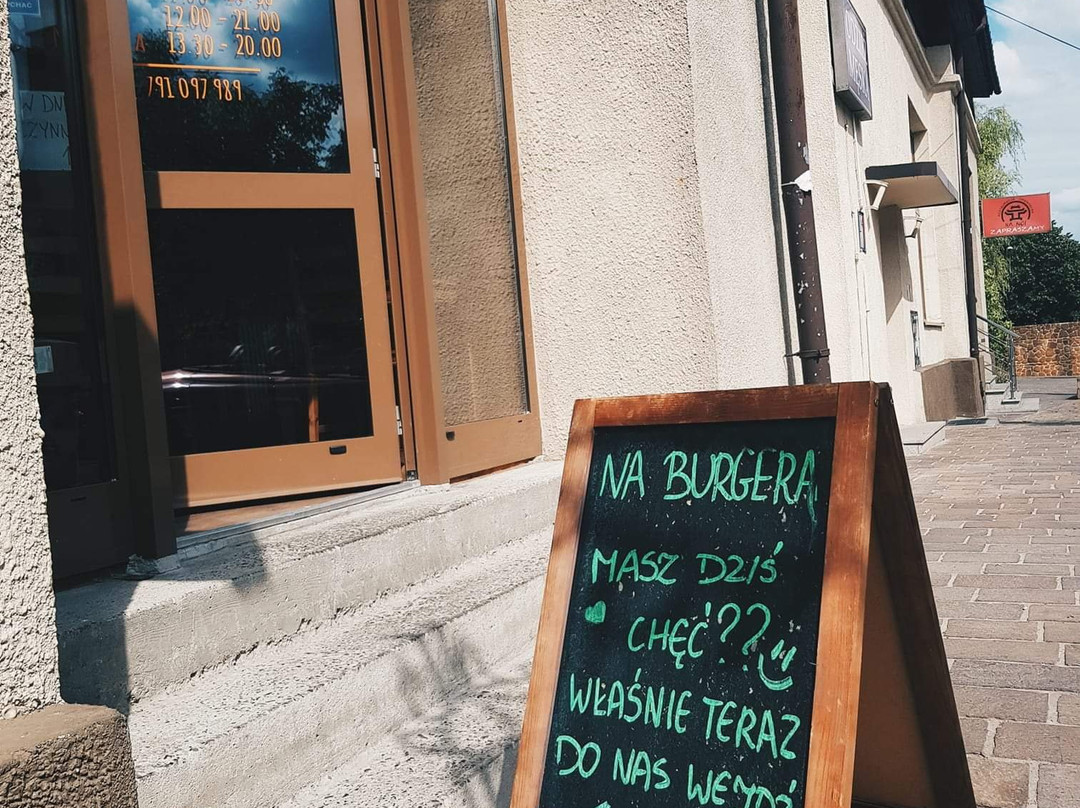 12.00 - 21.00
13.30 - 20.00
791 097 989
W DN
ZAPRASZAMY
NA BURGERA
MASZ DZIŚ
CHĘĆ??
WŁAŚNIE TERAZ
DO NAS WEJDŹ